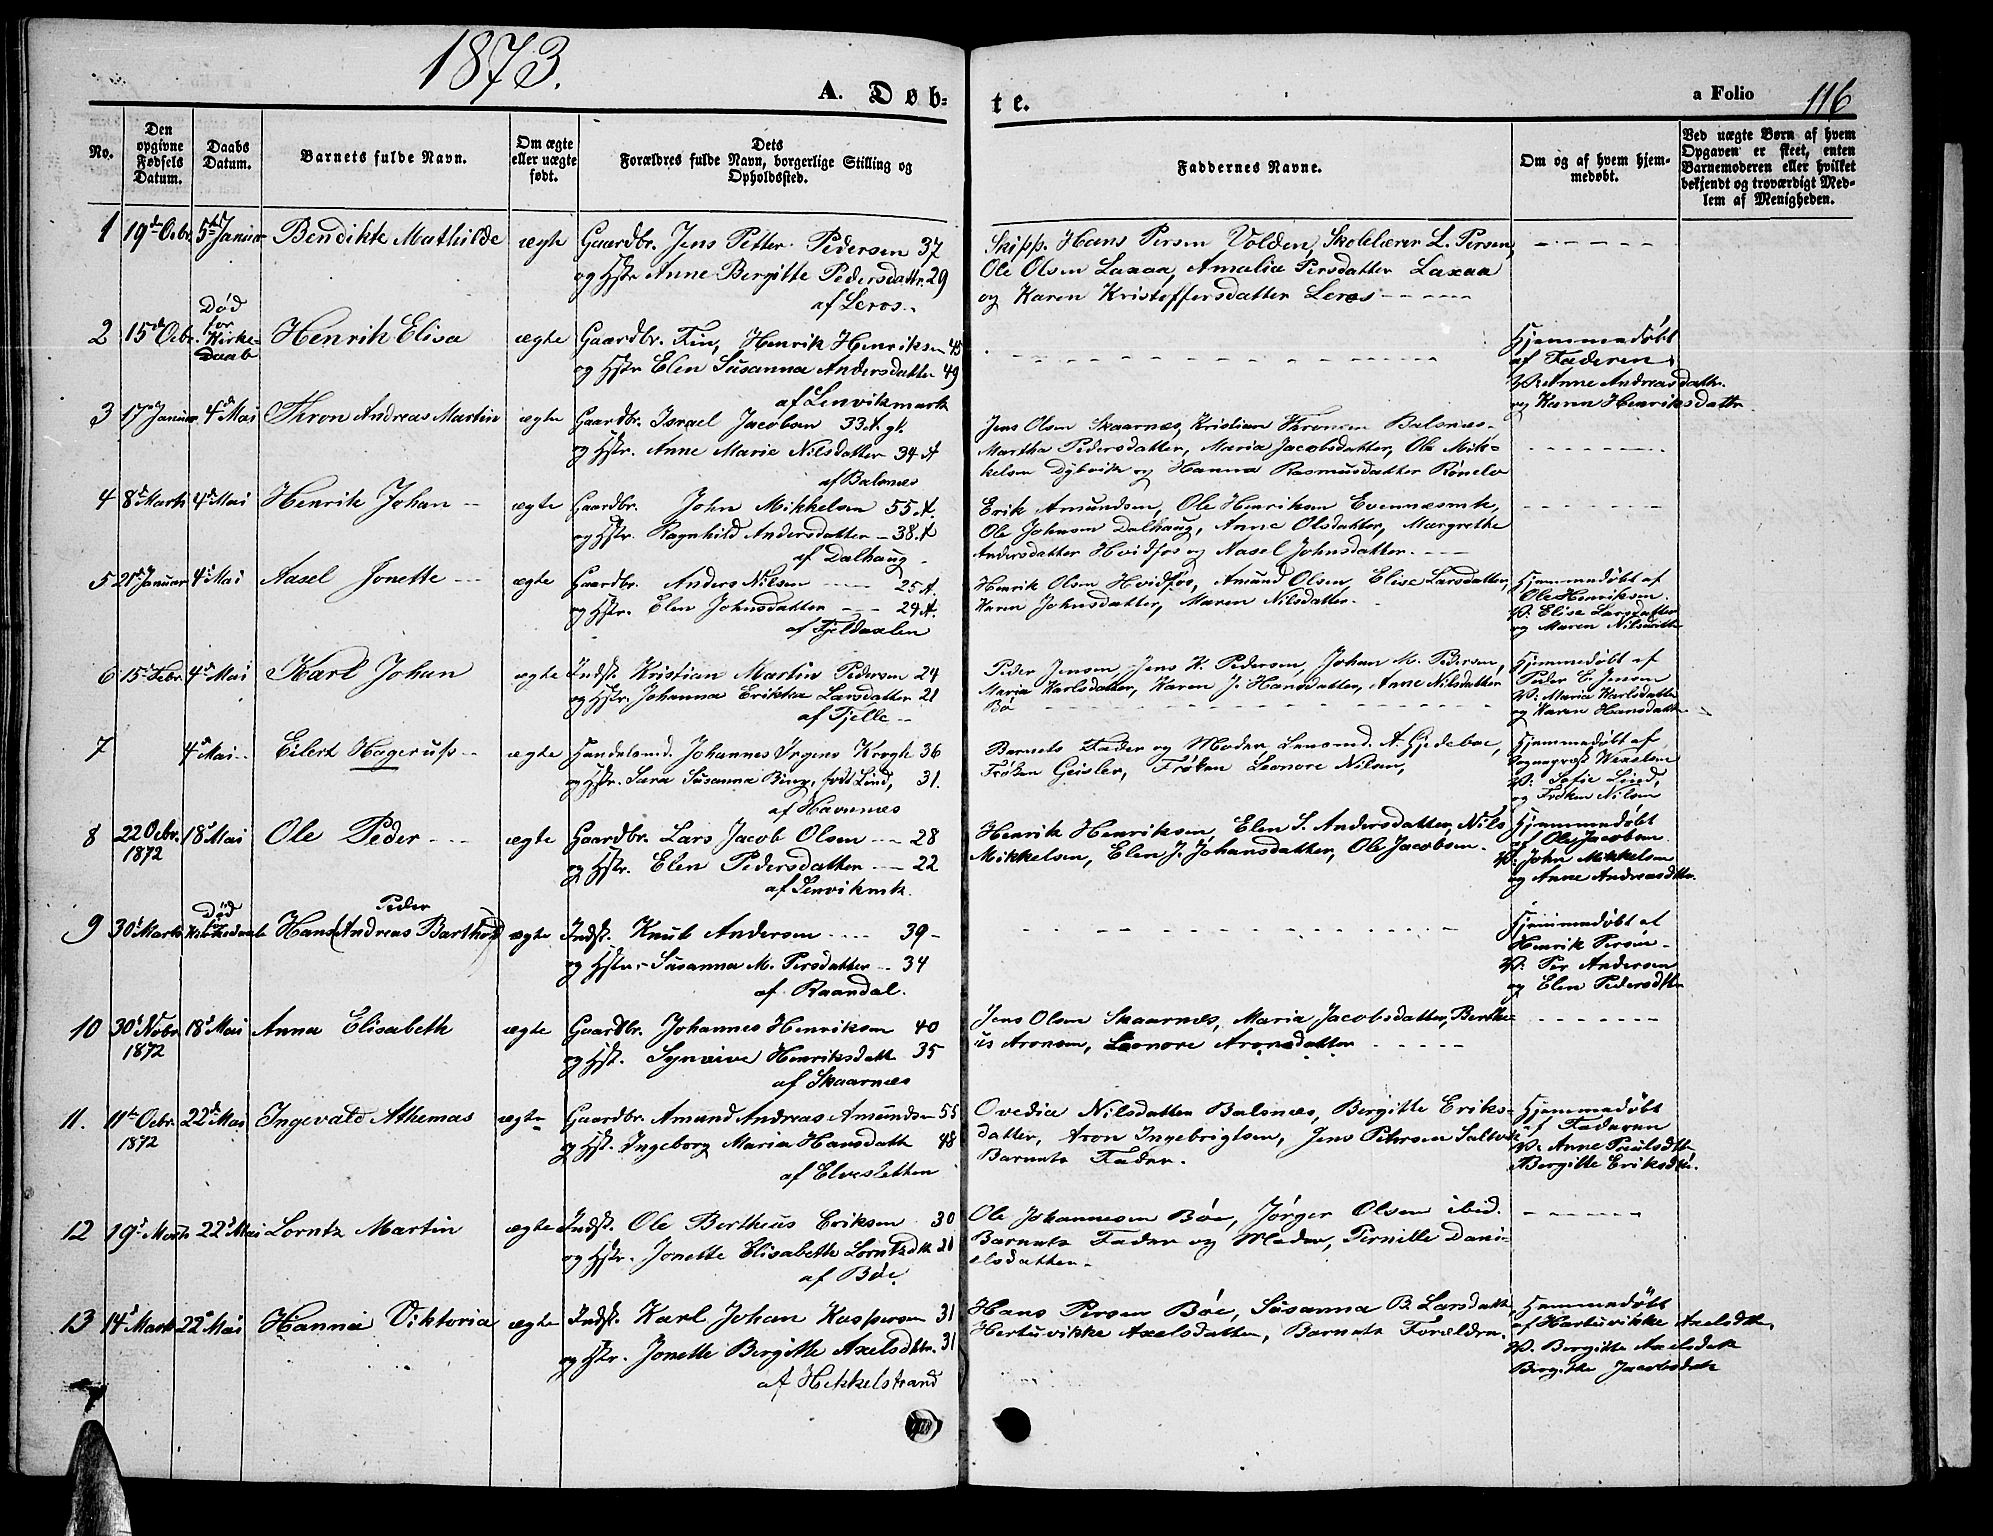 1873.
A. Døb-
te.
a Folio 116
No.
Den opgivne Fødsels Datum.
Daabs Datum.
Barnets fulde Navn.
Om ægte eller uægte født.
Dets Forældres fulde Navn, borgerlige Stilling og Opholdssted.
Faddernes Navne.
Om og af hvem hjemmedøbt.
Ved uægte Børn af hvem Opgaven er skeet, enten Barnemoderen eller hvilket bekjendt og troværdigt Medlem af Menigheden.
1 19de Octr. 5te Januar Bendikte Mathilde ægte Gaardbr. Jens Petter Pedersen 37
og Hstr Anne Bergitte Pedersdattr. 29
af Leros.
Skipp. Hans Persen Volden, Skolelærer L. Persen,
Ole Olsen Laxaa, Amalia Persdatter Laxaa
og Karen Kristoffersdatter Leros
2 15de Octr. Død for Kirkedaab Henrik Elisa ægte Gaardbr. Fin, Henrik Henriksen 45
og Hstr Elen Susanna Andersdatter 49
af Lenvikmark
Hjemmedøbt
af Faderen
V: Anne Andreasdattr.
og Karen Henriksdattr
3 17de Januar 4de Mai Thron Andreas Martin ægte Gaardbr. Israel Jacobsen 33 A. gl.
og Hstr. Anne Marie Nilsdatter 34 A
af Balsnes
Jens Olsen Skaarnæs, Kristian Thronsen Balsnæs
Martha Pedersdatter, Maria Jacobsdatter, Ole Mik-
kelsen Dybvik og Hanna Rasmusdatter Rönelv
4 8de Marts 4de Mai Henrik Johan ægte Gaardbr. John Mikkelsen 55 A.
og Hstr. Ragnhild Andersdatter 38 A
af Dalhaug
Erik Amundsen, Ole Henriksen Evennæsmk,
Ole Johnsen Dalhaug, Anne Olsdatter, Margrethe
Andersdatter Hvidfos og Aasel Johnsdatter.
5 21de Januar 4de Mai Aasel Jonette ægte Gaardbr. Anders Nilsen 25 A.
og Hstr. Elen Johnsdatter 29 A.
af Fjeldaxlen
Henrik Olsen Hvidfos, Amund Olsen, Elise Larsdatter,
Karen Johnsdatter, Maren Nilsdatter.
Hjemmedøbt af
Ole Henriksen.
V: Elise Larsdatter
og Maren Nilsdattr
6 15de Febr. 4de Mai Karl Johan ægte Indst. Kristian Martin Pedersen 24
og Hstr. Johanna Erikka Larsdatter 21
af Fjelle
Peder Jensen, Jens K. Pedersen, Johan M. Pedersen,
Maria Karlsdatter, Karen J. Hansdatter, Anne Nilsdatter
Bö
Hjemmedøbt af
Peder C. Jensen
V: Maria Karlsdatter
og Karen Hansdattr
7 4de Mai Eilert Hagerup ægte Handelsmd. Johannes Irgens Krogh 36
og Hstr. Sara Susanna Bing, født Lind, 31.
af Havnnæs
Barnets Fader og Moder, Lensmd. A. Gjedeboe,
Frøken Geisler, Frøken Leonore Nilsen,
Hjemmedøbt af
Sogneprest Wexelsen
V: Sofie Lind,
og Frøken Nilsen
8 22 Octr. 1872 18de Mai Ole Peder ægte Gaardbr. Lars Jacob Olsen 28
og Hstr. Elen Pedersdatter 22
af Lenvikmk.
Henrik Henriksen, Elen S. Andersdatter, Nils
Mikkelsen, Elen J. Johansdatter, Ole Jacobsen.
Hjemmedøbt
af Ole Jacobsen
V: John Mikkelsen
og Anne Andreasdttr.
9 30de Marts Død for Kirkedaab Hans (Andreas Barthold) Peder ægte Indst. Knut Andersen 39
og Hstr. Susanna M. Persdatter 34
af Raandal.
Hjemmedøbt af
Henrik Persen
V: Per Andersen
og Elen Pedersdttr
10 30de Novbr. 1872 18de Mai Anna Elisabeth ægte Gaardbr. Johannes Henriksen 40
og Hst. Synnive Henriksdatt 35
af Skaarnæs
Jens Olsen Skaarnæs, Maria Jacobsdatter, Berthe-
us Aronsen, Leonore Aronsdatter
11. 11te Octr. 1872 22de Mai Ingevald Athemas ægte Gaardbr. Amund Andreas Amundsen 55
og Hst. Ingeborg Maria Hansdatt 48
af Elvesletten
Ovedia Nilsdatter Balsnæs, Bergitte Eriks-
datter, Aron Ingebrigtsen, Jens Petersen Saltvik
Barnets Fader.
Hjemmedøbt
af Faderen
V: Anne Paulsdttr
Bergitte Eriksdtr.
12 19de Marts 22de Mai Lorntz Martin ægte Indst. Ole Bertheus Eriksen 30
og Hstr. Jonette Elisabeth Lorntzdtr 21
af Böe
Ole Johannesen Böe, Jörger Olsen ibid.
Barnets Fader og Moder, Pernille Dani-
elsdatter.
13 14de Marts 22de Mai Hanna Viktoria ægte Indst. Karl Johan Kaspersen 31
og Hstr. Jonette Bergitte Axelsdttr. 31
af Hekkelstrand
Hans Persen Böe, Susanna B. Larsdattr,
Hertuvikke Axelsdatter, Barnets Forældre.
Hjemmedøbt
af Hartuvikke Axelsdttr.
V. Bergitte Axelsdatt
Bergithe Jacobsdatt